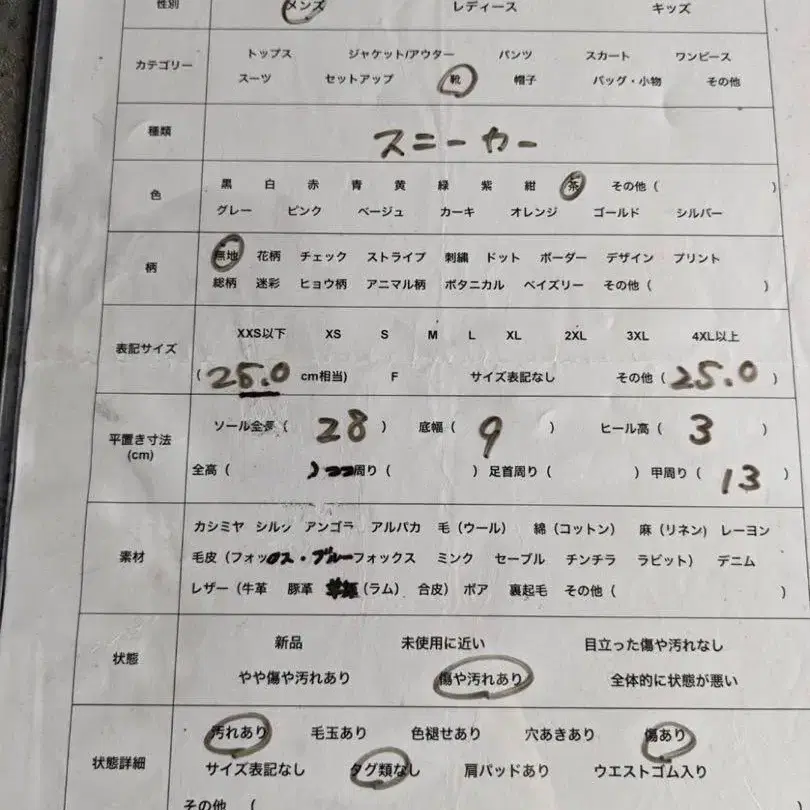 性別 メンズ レディース キッズ
カテゴリー トップス ジャケット/アウター パンツ スカート ワンピース
スーツ セットアップ 靴 帽子 バッグ・小物 その他
種類 スニーカー
色 黒 白 赤 青 黄 緑 紫 紺 茶 その他 ( )
グレー ピンク ベージュ カーキ オレンジ ゴールド シルバー
柄 無地 花柄 チェック ストライプ 刺繍 ドット ボーダー デザイン プリント
総柄 迷彩 ヒョウ柄 アニマル柄 ボタニカル ペイズリー その他 ( )
表記サイズ XXS以下 XS S M L XL 2XL 3XL 4XL以上
( 25.0 cm相当) F サイズ表記なし その他 ( 25.0 )
平置き寸法 (cm) ソール全長 ( 28 ) 底幅 ( 9 ) ヒール高 ( 3 )
全高 ( 周り ( ) 足首周り ( ) 甲周り ( 13 )
素材 カシミヤ シルク アンゴラ アルパカ 毛 (ウール) 綿 (コットン) 麻 (リネン) レーヨン
毛皮 (フォックス・ブルーフォックス ミンク セーブル チンチラ ラビット) デニム
レザー (牛革 豚革 (ラム) 合皮) ボア 裏起毛 その他 ( )
状態 新品 未使用に近い 目立った傷や汚れなし
やや傷や汚れあり 傷や汚れあり 全体的に状態が悪い
状態詳細 汚れあり 毛玉あり 色褪せあり 穴あきあり 傷あり
サイズ表記なし タグ類なし 肩パッドあり ウエストゴム入り
その他 (